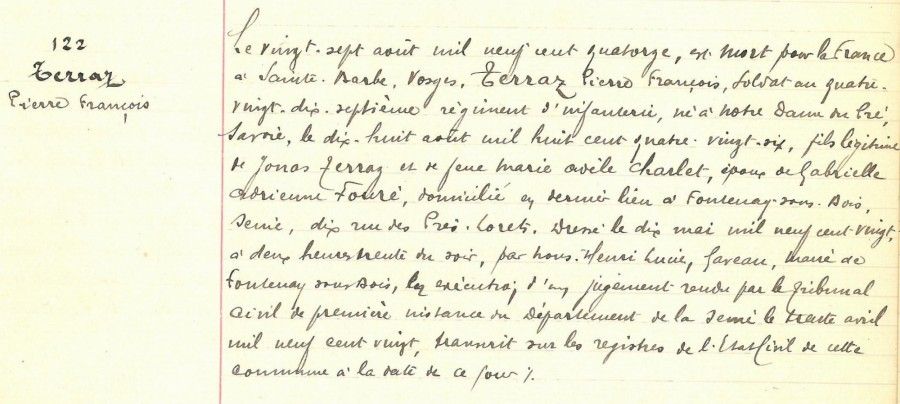 122
Terraz
Pierre François
Le vingt-sept août mil neuf cent quatorze, est mort pour la France
à Sainte-Barbe, Vosges, Terraz Pierre François, soldat au quatre-
vingt-dix-septième régiment d'infanterie, né à Notre Dame du Pré,
Savoie, le dix-huit août mil huit cent quatre-vingt-six, fils légitime
de Jonas Terraz et de feue Marie Adèle Charlet, époux de Gabrielle
Adrienne Fouré, domicilié en dernier lieu à Fontenay-sous-Bois,
Seine, dix rue des Prés-Lorets. Dressé le dix mai mil neuf cent vingt,
à deux heures trente du soir, par nous Henri Lucien Gaveau, maire de
Fontenay sous Bois, en exécution d'un jugement rendu par le tribunal
civil de première instance du Département de la Seine le trente avril
mil neuf cent vingt, transcrit sur les registres de l'Etat Civil de cette
commune à la date de ce jour ./.